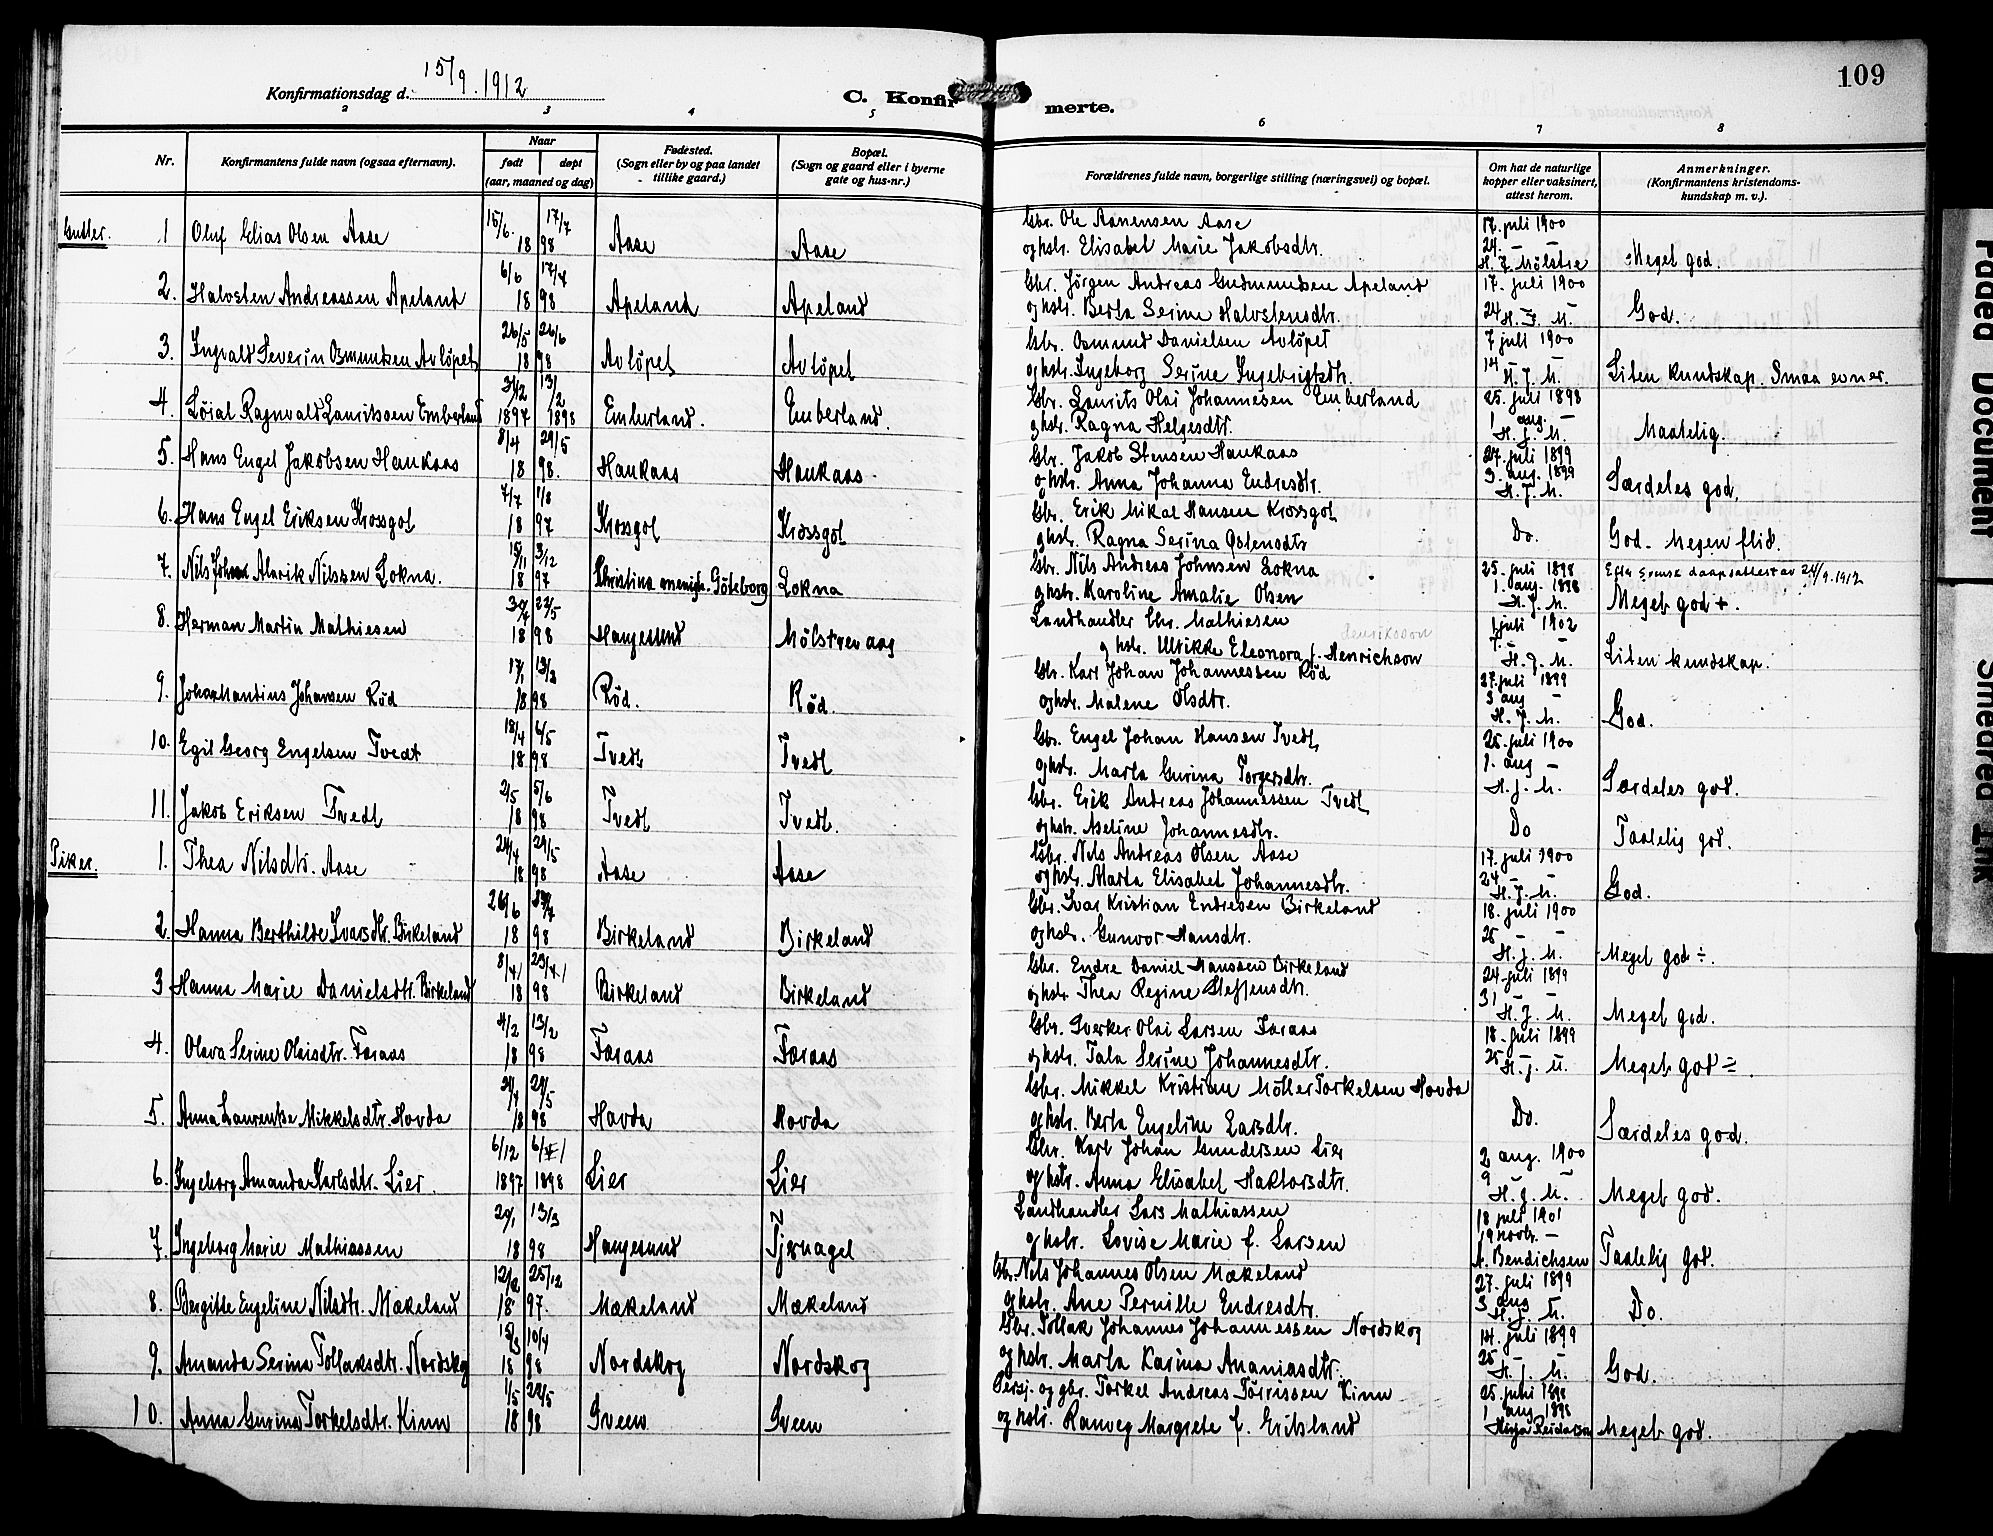 109
Konfirmationsdag d. 15/9. 1912
C. Konfirmerte.
2 3 4 5 6 7 8
Nr.
Konfirmantens fulde navn (ogsaa efternavn).
Naar
født døpt
(aar, maaned og dag)
Fødested.
(Sogn eller by og paa landet
tillike gaard.)
Bopæl.
(Sogn og gaard eller i byerne
gate og hus-nr.)
Forældrenes fulde navn, borgerlige stilling (næringsvei) og bopæl.
Om hat de naturlige
kopper eller vaksinert,
attest herom.
Anmerkninger.
(Konfirmantens kristendoms-
kundskap m. v.).
Gutter. 1 Oluf Elias Olsen Aase 15/6. 17/7 18 98 Aase Aase Gbr. Ole Aanensen Aase 17. juli 1900
og hstr. Elisabet Marie Jakobsdtr. 24. – – H. J. Mølstre Meget god.
2. Halvsten Andreassen Apeland 6/6 17/7 18 98 Apeland Apeland Gbr. Jörgen Andreas Gudmundsen Apeland 17. juli 1900
og hstr. Berta Serine Halvstensdtr. 24 – – H. J. M. God.
3. Ingvald Severin Osmundsen Avlöpet 26/5 26/6 18 98 Avlöpet Avlöpet Gbr. Osmund Danielsen Avlöpet 7 juli 1900
og hstr. Ingeborg Serine Ingebrigtsdtr. 14 – – H. J. M. Liten kundskap. Smaa evner.
4. Loial Ragnvald Lauritssen Emberland 31/12 13/2 1897 1898 Emberland. Emberland. Gbr. Laurits Olai Johannesen Emberland 25. juli 1898
og hstr. Ragna Helgesdtr. 1 aug. – H. J. M. Maatelig.
5. Hans Engel Jakobsen Haukaas 8/4 29/5 18 98. Haukaas Haukaas Gbr. Jakob Stensen Haukaas 27. juli 1899
og hstr. Anna Johanna Endresdtr. 3. aug. 1899 H. J. M. Særdeles god.
6. Hans Engel Eriksen Krossgot 7/7 1/8 18 97 Krossgot Krossgot Gbr. Erik Mikal Hansen Krossgot
og hstr. Ragna Serina Ostensdtr Do. God. Megen flid.
7. Nils Johan Alarik Nilssen Lokna. 15/11 3/12 18 97 Christina menigh. Göteborg Lokna Gbr. Nils Andreas Johnsen Lokna 25. juli 1898 Efter svensk daapsattest av 24/9. 1912
og hstr. Karoline Amalie Olsen 1. aug. 1898 H. J. M. Meget god +.
8. Herman Martin Mathiesen 18 98 Haugesund Mölstrevaag Landhandler Chr. Mathiesen 1 juli 1902
Henriksson
og hstr. Ulrikke Eleonora f. Henrichson 7. – – H. J. M. Liten kundskap.
9. Johan Mandius Johansen Röd 17/1 13/2 18 98 Röd. Röd. Gbr. Karl Johan Johannessen Röd 27. juli 1899
og hstr. Malene Olsdtr. 3 aug – H. J. M. God.
10. Egil Georg Engelsen Tvedt 18/4 6/5 18 98 Tvedt Tvedt Gbr. Engel Johan Hansen Tvedt 25. juli 1900
og hstr. Marta Gurina Torgersdtr. 1. aug – H. J. M. Særdeles god.
11. Jakob Eriksen Tvedt 2/5 5/6 18 98 Tvedt Tvedt. Gbr. Erik Andreas Johannessen Tvedt
og hstr. Aseline Johannesdtr. Do Taalelig god.
Piker. 1. Thea Nilsdtr. Aase 24/4 29/5 18 98 Aase Aase Gbr. Nils Andreas Olsen Aase 17. juli 1900
og hstr. Marta Elisabet Johannesdtr. 24 – – H. J. M. God.
2. Hanna Berthilde Ivarsdtr. Birkeland 18 98 Birkeland Birkeland Gbr. Ivar Kristian Endresen Birkeland 18. juli 1900
og hstr. Gunvor Hansdtr. 25 – – H. J. M. Meget god ÷.
3 Hanna Marie Danielsdtr. Birkeland 18 98 Birkeland Birkeland Gbr. Endre Daniel Hanssen Birkeland 24. juli 1899
og hstr Thea Regine Steffensdtr. 31 – – H. J. M. Meget god.
4. Olava Serine Olaisdtr. Foraas 4/2 13/2 18 98 Foraas Foraas Gbr. Sverker Olai Larsen Foraas 18. juli 1899
og hstr. Tala Serine Johannesdtr. 25 – – H. J. M. Meget god ÷.
5. Anna Laurentse Mikkelsdtr. Hovda 29/5 18 98 Hovda Hovda Gbr. Mikkel Kristian Möller Torkelsen Hovda
og hstr. Berta Engeline Larsdtr. Do. Særdeles god.
6. Ingeborg Amanda Karlsdtr. Lier 6/12 1897 1898 Lier Lier Gbr. Karl Johan Gundersen Lier 2 aug. 1900
og hstr. Anna Elisabet Haktorsdtr. 9 – – H. J. M. Meget god.
7. Ingeborg Marie Mathiassen 29/1 13/3 18 98 Haugesund Tjernagel Landhandler Lars Mathiassen 18 juli 1901
og hstr. Lovise Marie f. Larsen 19 novbr. – A. Bendichsen Taalelig god.
8. Bergitte Engeline Nilsdtr. Mækeland 12/12 25/12 18 97. Mækeland Mækeland Gbr. Nils Johannes Olsen Mækeland 27. juli 1899
og hstr. Ane Pernille Endresdtr. 3 aug – H. J. M. Do.
9. Amanda Serina Tollaksdtr. Nordskog 15/3 10/4 18 98 Nordskog Nordskog Gbr. Tollak Johannes Johannessen Nordskog 14. juli 1899
og hstr. Marta Karina Ananiasdtr. 25 – – H. J. M. God.
10. Anna Gurina Torkelsdtr. Kinn 1/5 22/5 18 98 Sveen Sveen Gbr. Torkel Andreas Törrissen Kinn 25. juni 1898
og hstr. Ranveg Margrete f. Eriksland 1 aug 1898 Meget god.
Faded Document
Smeared Ink